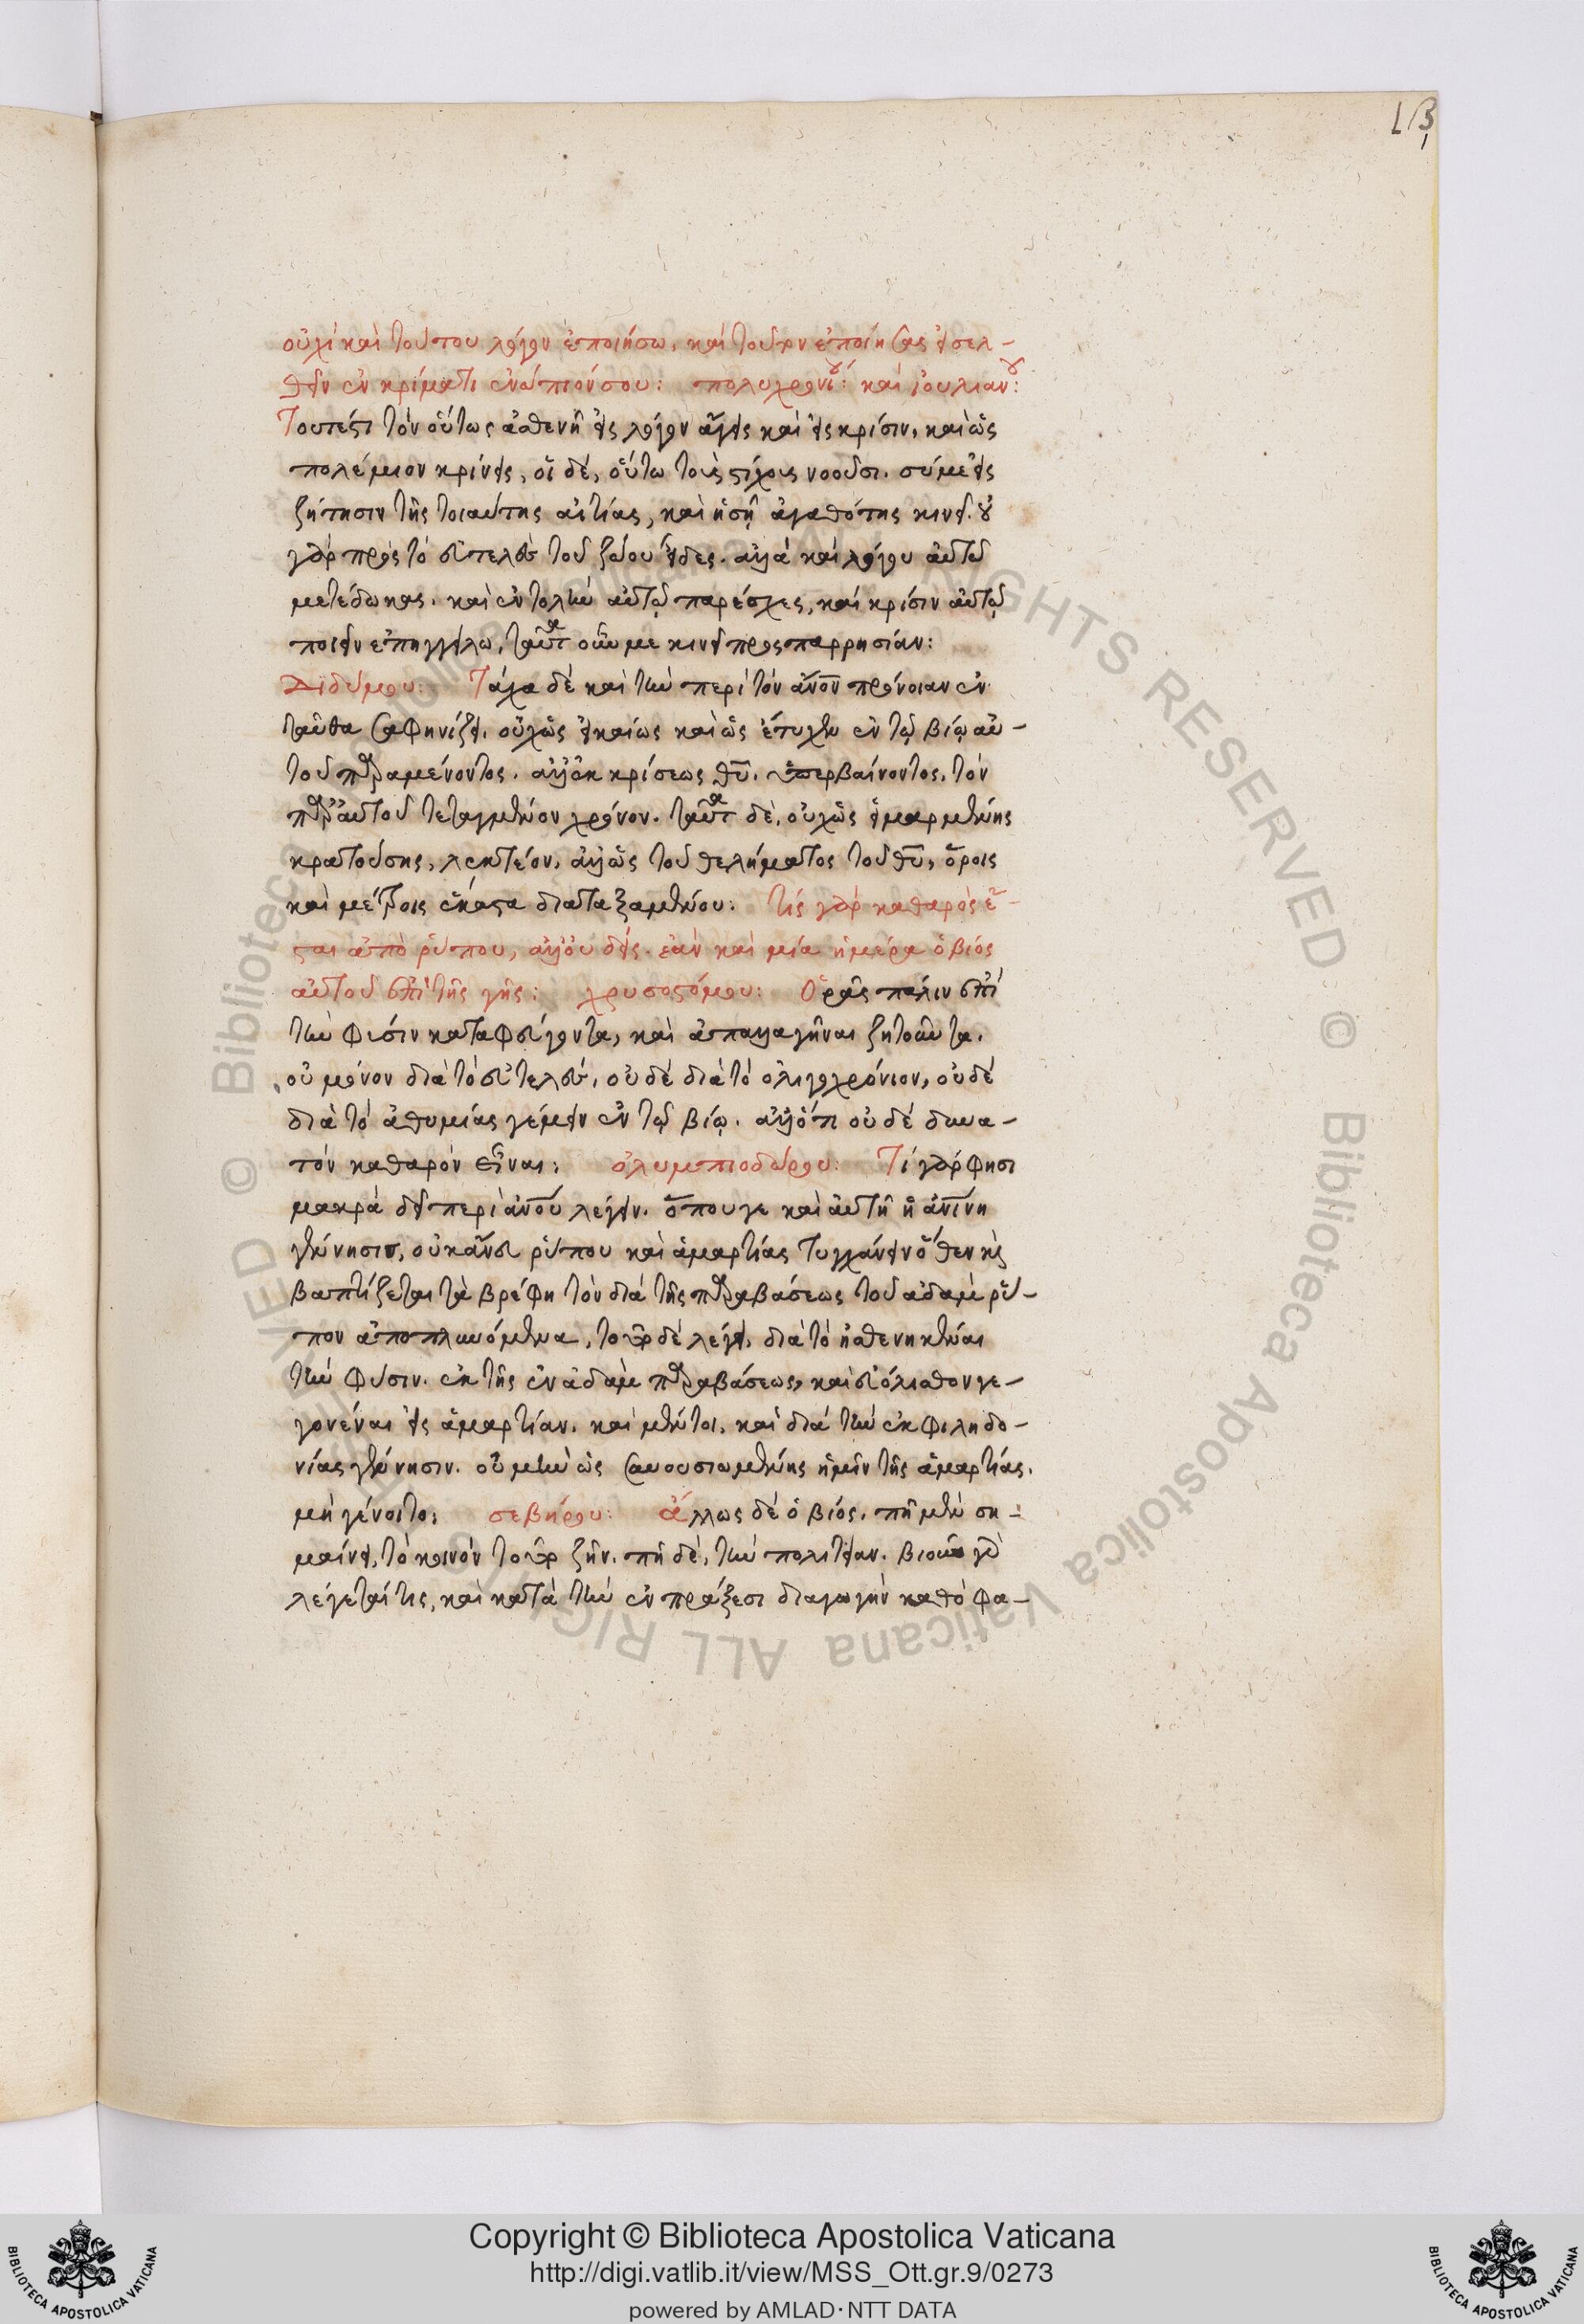 ιβ
οὐχὶ καὶ τούτου λόγον ἐποιήσω, καὶ τοῦτον ἐποίησας εἰσελ-
θεῖν ἐν κρίματι ἐνώπιόν σου: πολυχρονίου: καὶ ἰουλιανοῦ:
Τουτέστι τὸν οὕτως ἀσθενῆ εἰς λόγον ἄγεις καὶ εἰς κρίσιν, καὶ ὡς
πολέμιον κρίνεις, οἱ δὲ, οὕτω τοὺς στίχους νοοῦσι. σύ με εἰς
ζήτησιν τῆς τοιαύτης αἰτίας, καὶ ἡ σὴ ἀγαθότης κινεῖ. οὐ
γὰρ πρὸς τὸ εὐτελὲς τοῦ ζώου εἶδες. ἀλλὰ καὶ λόγου αὐτῷ
μετέδωκας. καὶ ἐντολὴν αὐτῷ παρέσχες, καὶ κρίσιν αὐτῷ
ποιεῖν ἐπηγγείλω, ταῦτα οὖν με κινεῖ πρὸς παρρησίαν:
Διδύμου: Τάχα δὲ καὶ τὴν περὶ τὸν ἄνον πρόνοιαν ἐν
ταῦθα σαφηνίζει. οὐχ ὡς εἰκαίως καὶ ὡς ἔτυχεν ἐν τῷ βίῳ αὐ-
τοῦ παραμένοντος. ἀλλ' ἐκ κρίσεως θυ. ὑπερβαίνοντος. τὸν
παρ' αὐτοῦ τεταγμένον χρόνον. ταῦτα δὲ, οὐχ ὡς εἱμαρμένης
κρατούσης, λεκτέον, ἀλλ' ὡς τοῦ θελήματος τοῦ θυ, ὅροις
καὶ μέτροις ἕκαστα διαταξαμένου: τίς γὰρ καθαρὸς ἔ-
σται ἀπὸ ῥύπου, ἀλλ' οὐδείς. ἐὰν καὶ μία ἡμέρα ὁ βίος
αὐτοῦ ἐπὶ τῆς γῆς: χρυσοστόμου: Ὁρᾷς πάλιν ἐπὶ
τὴν φύσιν καταφεύγοντα, καὶ ἀπαλλαγῆναι ζητοῦντα.
οὐ μόνον διὰ τὸ εὐτελὲς, οὐδὲ διὰ τὸ ὀλιγοχρόνιον, οὐδὲ
διὰ τὸ ἀθυμίας γέμειν ἐν τῷ βίῳ. ἀλλ' ὅτι οὐδὲ δυνα-
τὸν καθαρὸν εἶναι: ὀλυμπιοδώρου: Τί γάρ φησι
μακρὰ δεῖ περὶ ἀνου λέγειν. ὅπου γε καὶ αὐτὴ ἡ ἀνίνη
γέννησις, οὐκ ἄνευ ῥύπου καὶ ἁμαρτίας τυγχάνει ὅθεν κὶ
βαπτίζεται τὰ βρέφη τὸν διὰ τῆς παραβάσεως τοῦ ἀδὰμ ῥύ-
πον ἀποπλυνόμενα, τοῦτο δὲ λέγει, διὰ τὸ ἠσθενηκέναι
τὴν φύσιν. ἐκ τῆς ἐν ἀδὰμ παραβάσεως, καὶ εὐόλισθον γε-
γονέναι εἰς ἁμαρτίαν. καὶ μέντοι, καὶ διὰ τὴν ἐκ φιληδο-
νίας γέννησιν. οὐ μὴν ὡς συνουσιωμένης ἡμῖν τῆς ἁμαρτίας.
μὴ γένοιτο: σεβήρου: ἄλλως δὲ ὁ βίος. πῆ μὲν ση-
μαίνει, τὸ κοινὸν τοῦτο ζῆν. πῆ δὲ, τὴν πολιτείαν. βιοῦν γὰρ
λέγεταί τις, καὶ κατὰ τὴν ἐν πράξεσι διαγωγὴν καθὸ φα-
Copyright © Biblioteca Apostolica Vaticana
http://digi.vatlib.it/view/MSS_Ott.gr.9/0273
powered by AMLAD·NTT DATA